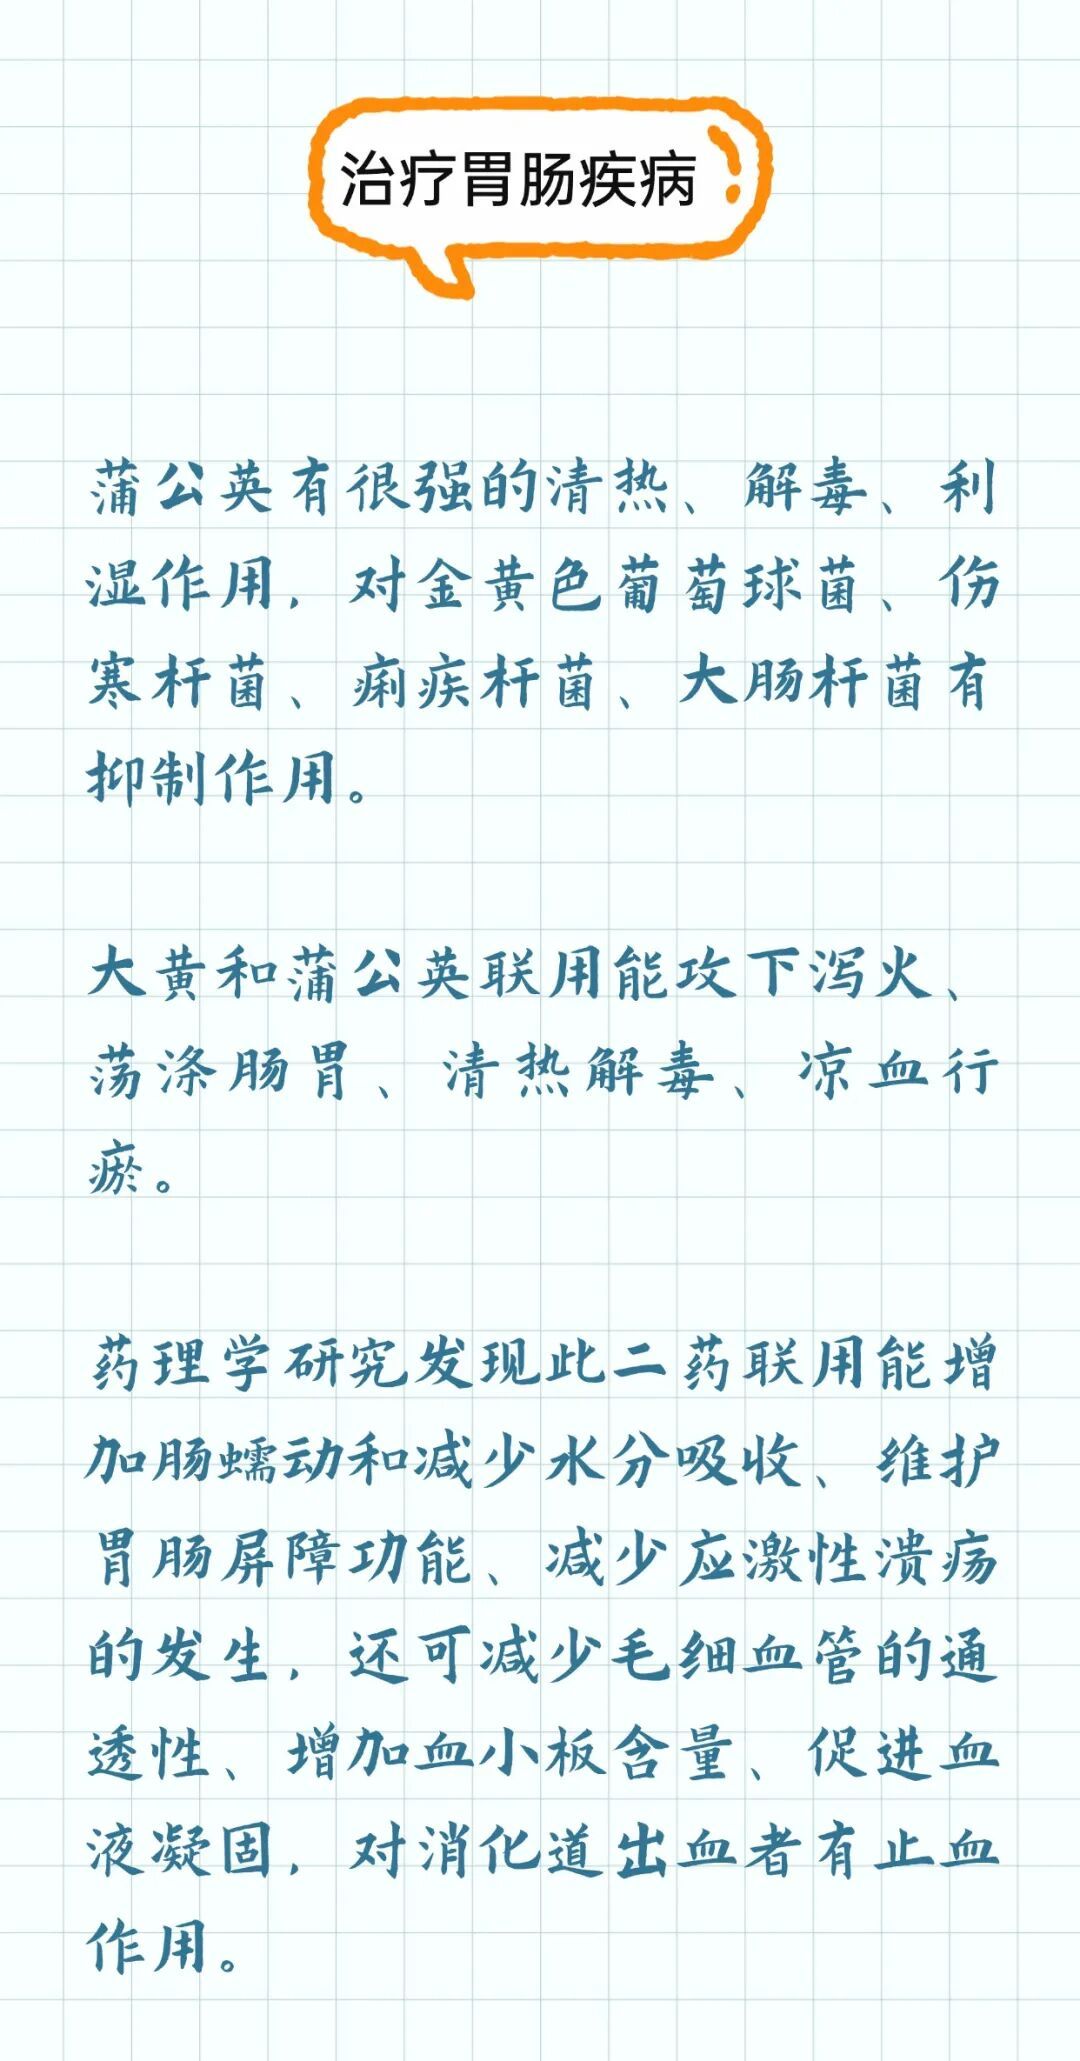 治疗胃肠疾病
蒲公英有很强的清热、解毒、利
湿作用，对金黄色葡萄球菌、伤
寒杆菌、痢疾杆菌、大肠杆菌有
抑制作用。
大黄和蒲公英联用能攻下泻火、
荡涤肠胃、清热解毒、凉血行
瘀。
药理学研究发现此二药联用能增
加肠蠕动和减少水分吸收、维护
胃肠屏障功能、减少应激性溃疡
的发生，还可减少毛细血管的通
透性、增加血小板含量、促进血
液凝固，对消化道出血者有止血
作用。